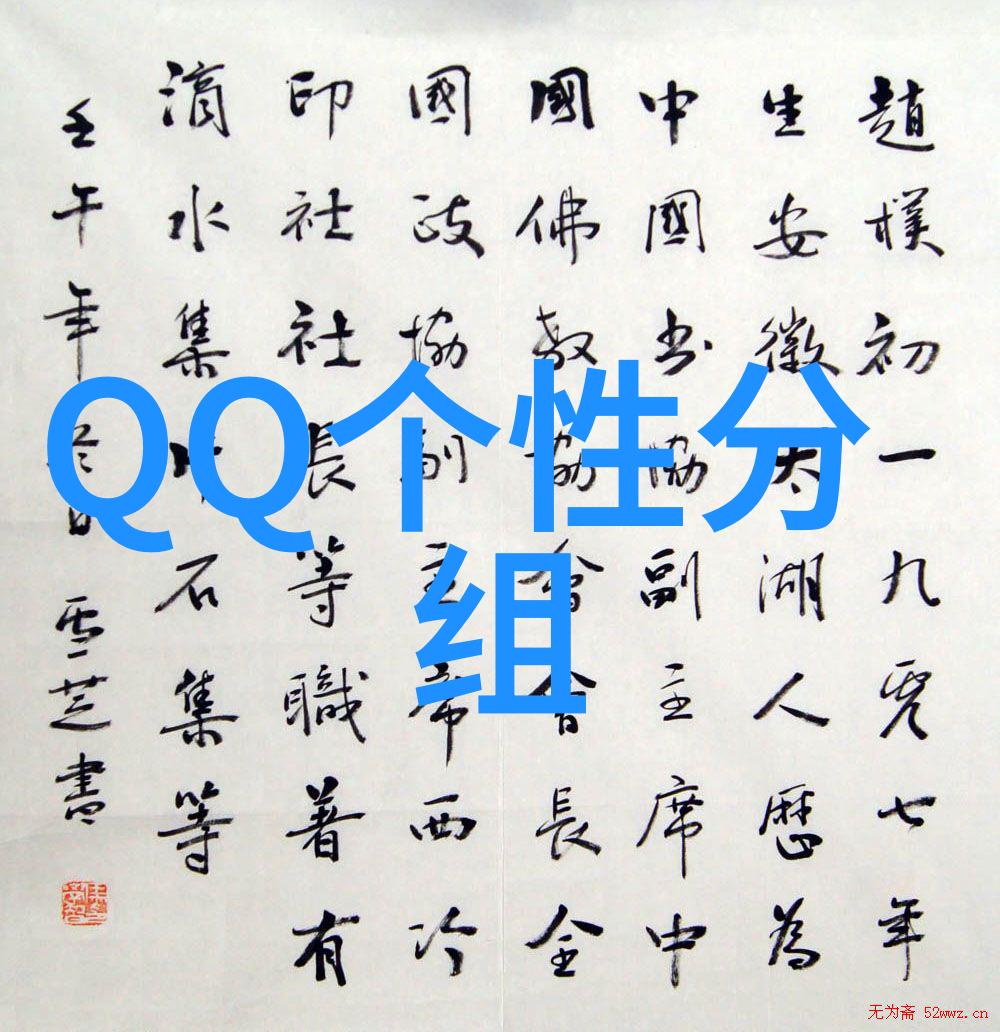 趙樸初一九零七年
生安徽太湖人歷為
中國书協副主席中
國佛教協會會長全
國政協副主席西泠
印社社長等職著有
滴水集片石集等
壬午年冬日雪芝書
QQ个性分
组
无为斋 52wwz.cn